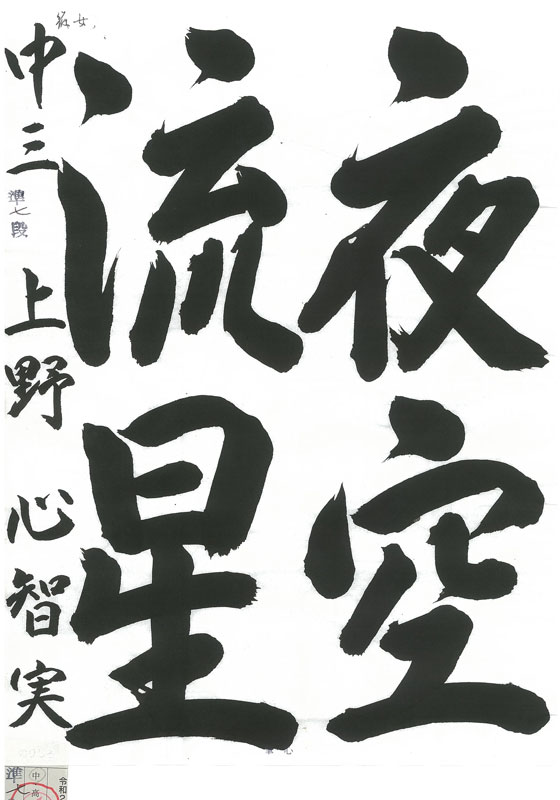 夜空
流星
中三 上野 心智実
準七段
中 高
令和2